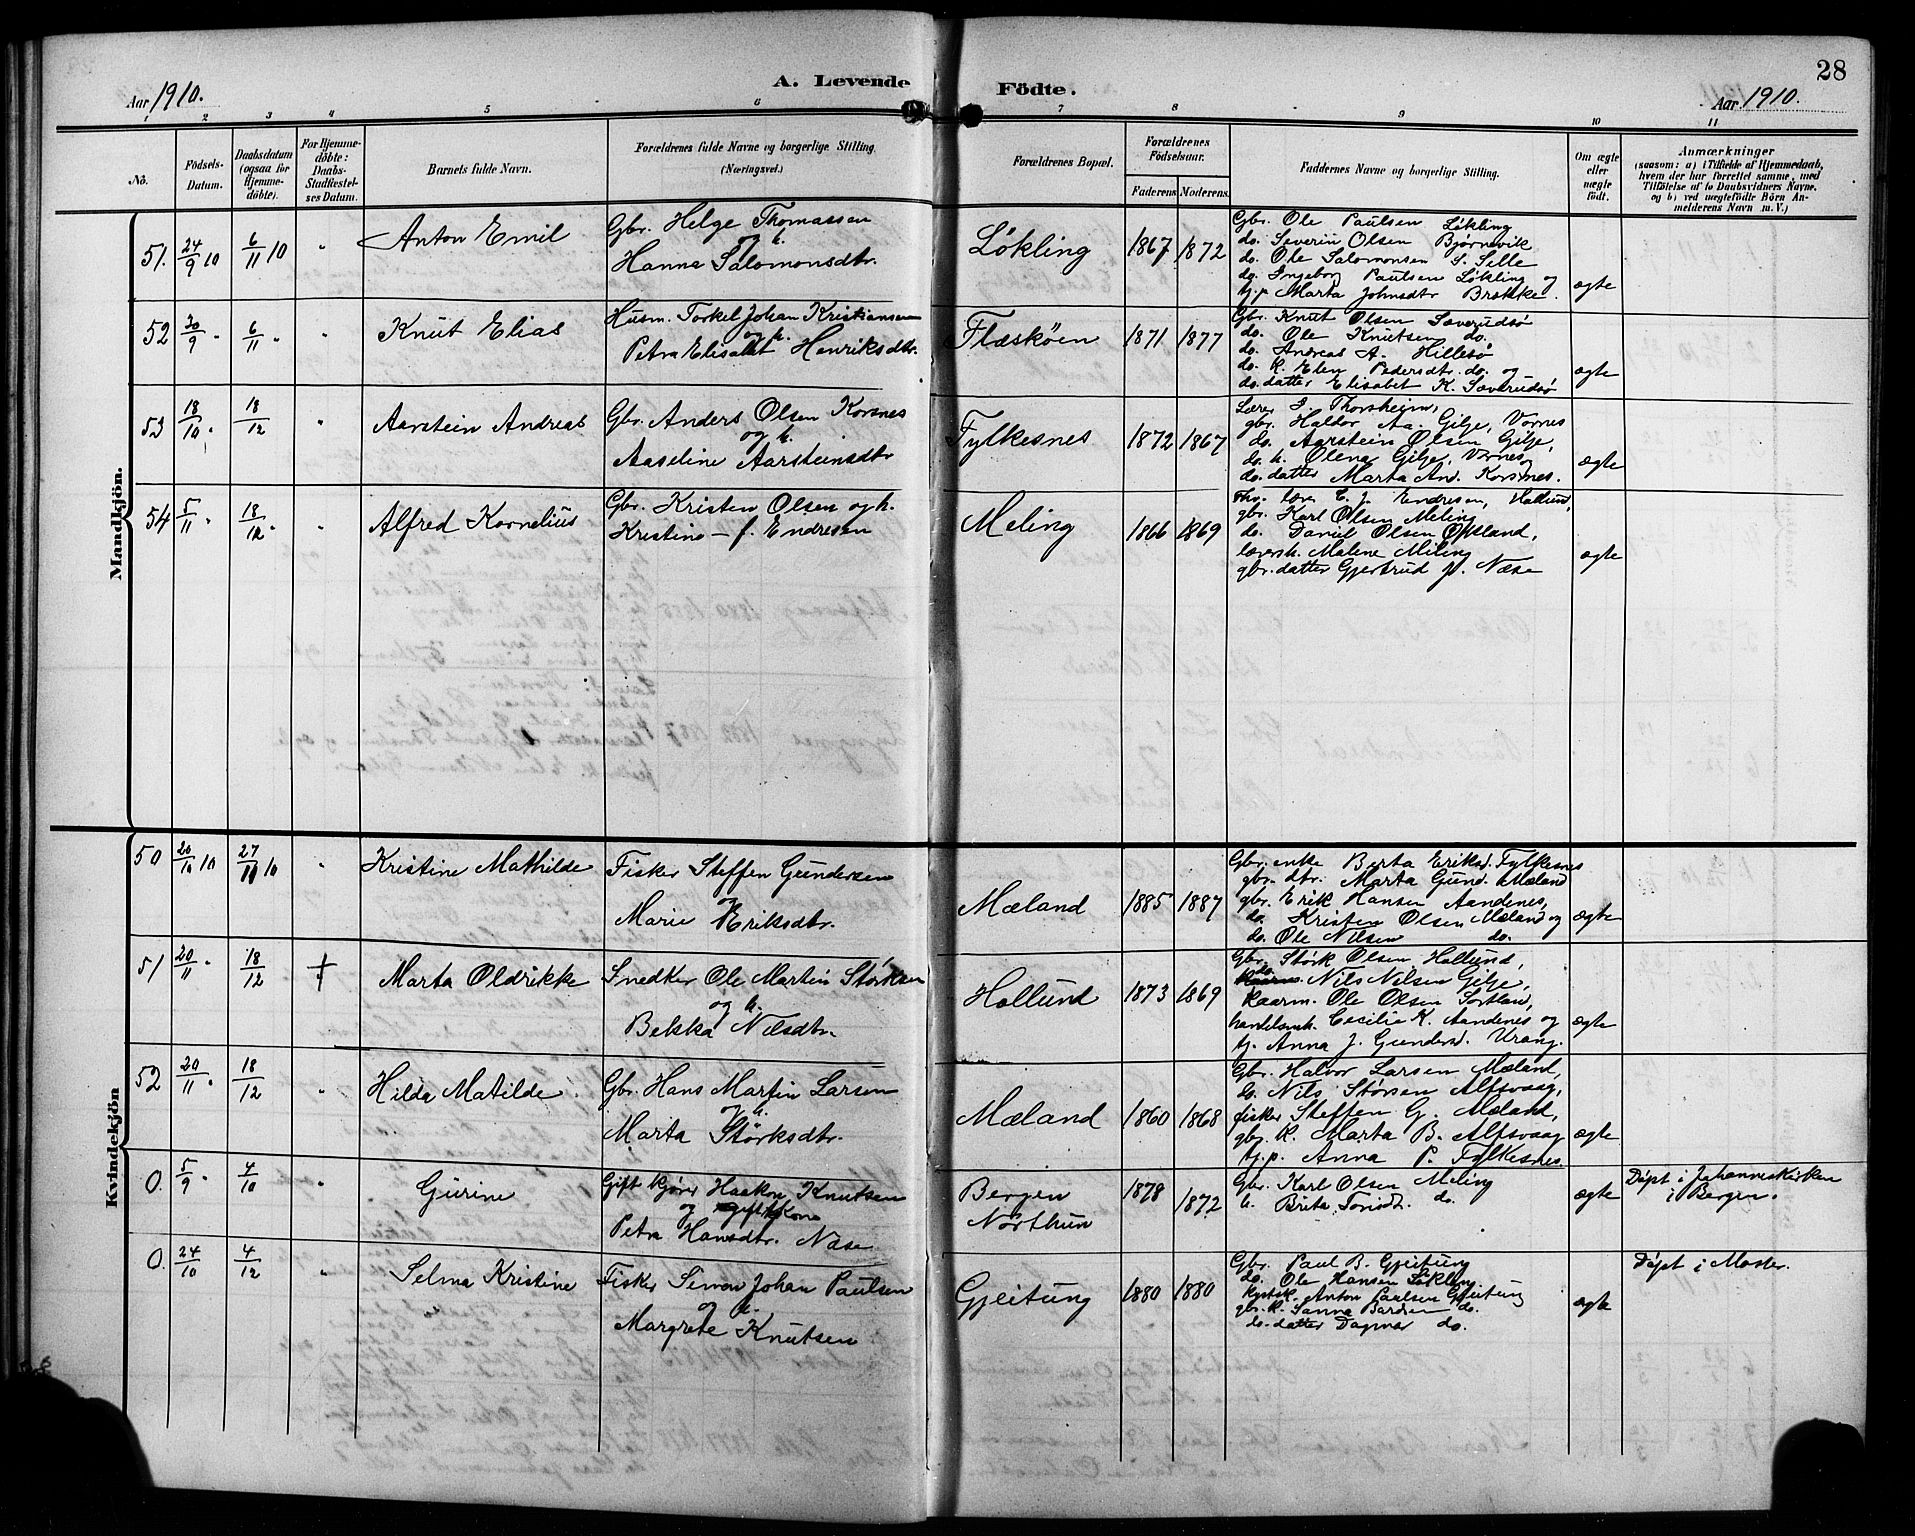 28
Aar 1910.
A. Levende Födte.
Aar 1910.
1 2 3 4 5 6 7 8 9 10 11
No.
Födsels-
Datum.
Daabsdatum
(ogsaa for
Hjemme-
döbte).
For Hjemme-
döbte:
Daabs-
Stadfæstel-
ses Datum.
Barnets fulde Navn.
Forældrenes fulde Navne og borgerlige Stilling.
(Næringsvei.)
Forældrenes Bopæl.
Forældrenes
Födselsaar.
Faderens Moderens.
Faddernes Navne og borgerlige Stilling.
Om ægte
eller
uægte
födt.
Anmærkninger
(saasom: a) i Tilfælde af Hjemmedaab,
hvem der har forrettet samme, med
Tilföielse af to Daabsvidners Navne,
og b) ved uægtefödte Börn An-
melderens Navn m. V.)
Mandkjön.
51. 24/9 10 6/11 10 " Anton Emil
Gbr. Helge Thomassen
og h.
Hanna Salomonsdtr.
Løkling 1867 1872
Gbr. Ole Paulsen Løkling
do. Severin Olsen Bjørnevik
do. Ole Salomonsen S. Selle
do. Ingeborg Paulsen Løkling og
tj.p. Marta Johnsdtr Brække.
ægte
52 30/9 " 6/11 " " Knut Elias
Husm. Torkel Johan Kristiansen
og h.
Petra Elisabet Henriksdtr.
Flæskøen 1871 1877
Gbr. Knut Olsen Sæverudsø
do. Ole Knutsen do.
do. Andreas A. Hillesø
do. k. Elen Pedersdtr. do. og
do. datter Elisabet K. Sæverudsø
ægte
53 18/10 " 18/12 " Aarstein Andreas
Gbr. Anders Olsen Korsnes
og h.
Aaseline Aarsteinsdtr
Fylkesnes 1872 1867
Lærer J. Thorsheim,
gbr. Haldor Aa. Gilje, Vornes
do. Aarstein Olsen Gilje,
do. h. Olena Gilje, Vornes og
do. datter Marta And. Korsnes.
ægte
54 5/11 " 18/12 " " Alfred Kornelius
Gbr. Kristen Olsen og h.
Kristine – f. Endresen
Meling 1866 1869
Fhv. lærer E. J. Endresen, Hallund,
gbr. Karl Olsen Meling
do. Daniel Olsen Økland,
lærersk. Malene Meling
gbr. datter Gjertrud J. Næse
ægte
Kvindekjön
50 20/10 10 27/11 10 " Kristine Mathilde
Fisker Steffen Gundersen
og
Marie Eriksdtr.
Mæland 1885 1887
Gbr. enke Berta Eriksd. Fylkesnes
gbr. dtr. Marta Gund. Mæland
gbr. Erik Hansen Aandenes,
do. Kristen Olsen Mæland og
do. Ole Nilsen do.
ægte
51 20/11 " 18/12 † Marta Oldrikke
Snedker Ole Martin Størksen
og h.
Bekka Nilsdtr.
Hallund 1873 1869
Gbr. Størk Olsen Hallund,
do. Nils Nilsen Gilje,
kaarm. Ole Olsen Sortland,
handelsmk. Cecilie K. Aandenes og
tj. Anna J. Gundersd. Urang.
ægte
52 20/11 " 18/12 " Hilda Matilde
Gbr. Hans Martin Larsen
og h.
Marta Størksdtr.
Mæland 1860 1868
Gbr. Halvor Larsen Mæland,
do. Nils Størsen Alfsvaag,
fisker Steffen G. Mæland,
gbr. k. Marta B. Alfsvaag
tj.p. Anna P. Fylkesnes.
ægte
0. 5/9 " 4/10 " Gurine
Gift kjører Haakon Knutsen
og gift kone
Petra Hansdtr. Næse
Bergen
Northun
1878 1872
Gbr. Karl Olsen Meling
h. Brita Torisd. do.
ægte
Døpt i Johanneskirken
i Bergen.
0. 24/10 4/12 " Selma Kristine
Fisker Simon Johan Paulsen
og h.
Margrete Knutsen
Gjeitung 1880 1880
Gbr. Paul B. Gjeitung
do. Ole Hansen Løkling
Anton Paulsen Gjeitung
gbr. k. Sanna Bardsen do.
do. datter Dagmar do.
ægte
Døpt i Moster.